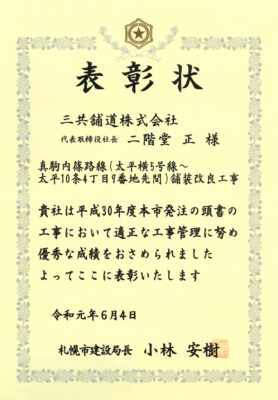 表彰状
三共舗道株式会社
代表取締役社長 二階堂 正 様
真駒内篠路線(太平横5号線～
太平10条4丁目9番地先間)舗装改良工事
貴社は平成30年度本市発注の頭書の
工事において適正な工事管理に努め
優秀な成績をおさめられました
よってここに表彰いたします
令和元年6月4日
札幌市建設局長 小林 安樹